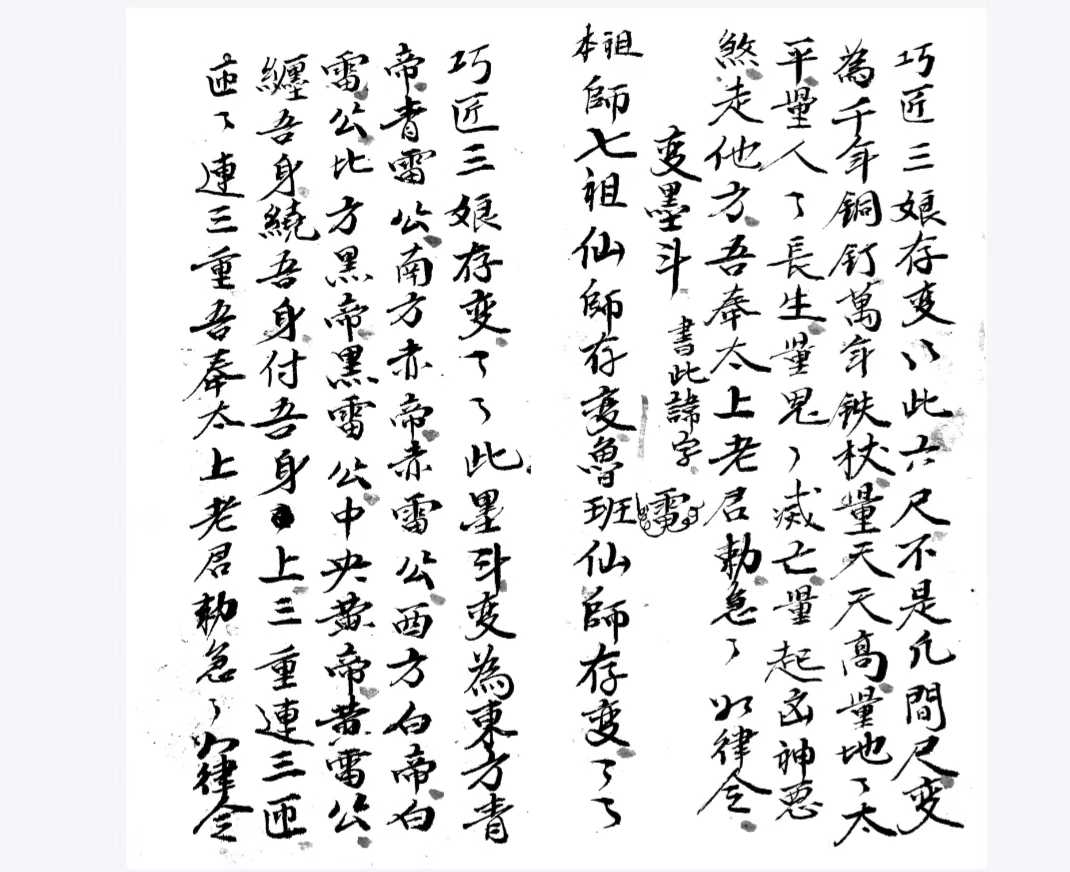 巧匠三娘存变以此六尺不是凡間尺变
為千年銅釘萬年鉄杖量天天高量地々太
平量人々長生量鬼々滅亡量起凶神惡
煞走他方吾奉太上老君勅急々如律令
变墨斗 書此諱字
本祖師七祖仙師存变魯班仙師存变々々
巧匠三娘存变々々此墨斗变為東方青
帝青雷公南方赤帝赤雷公西方白帝白
雷公北方黑帝黑雷公中央黄帝黄雷公
纒吾身繞吾身付吾身上三重連三匝
匝々連三重吾奉太上老君勅急々如律令